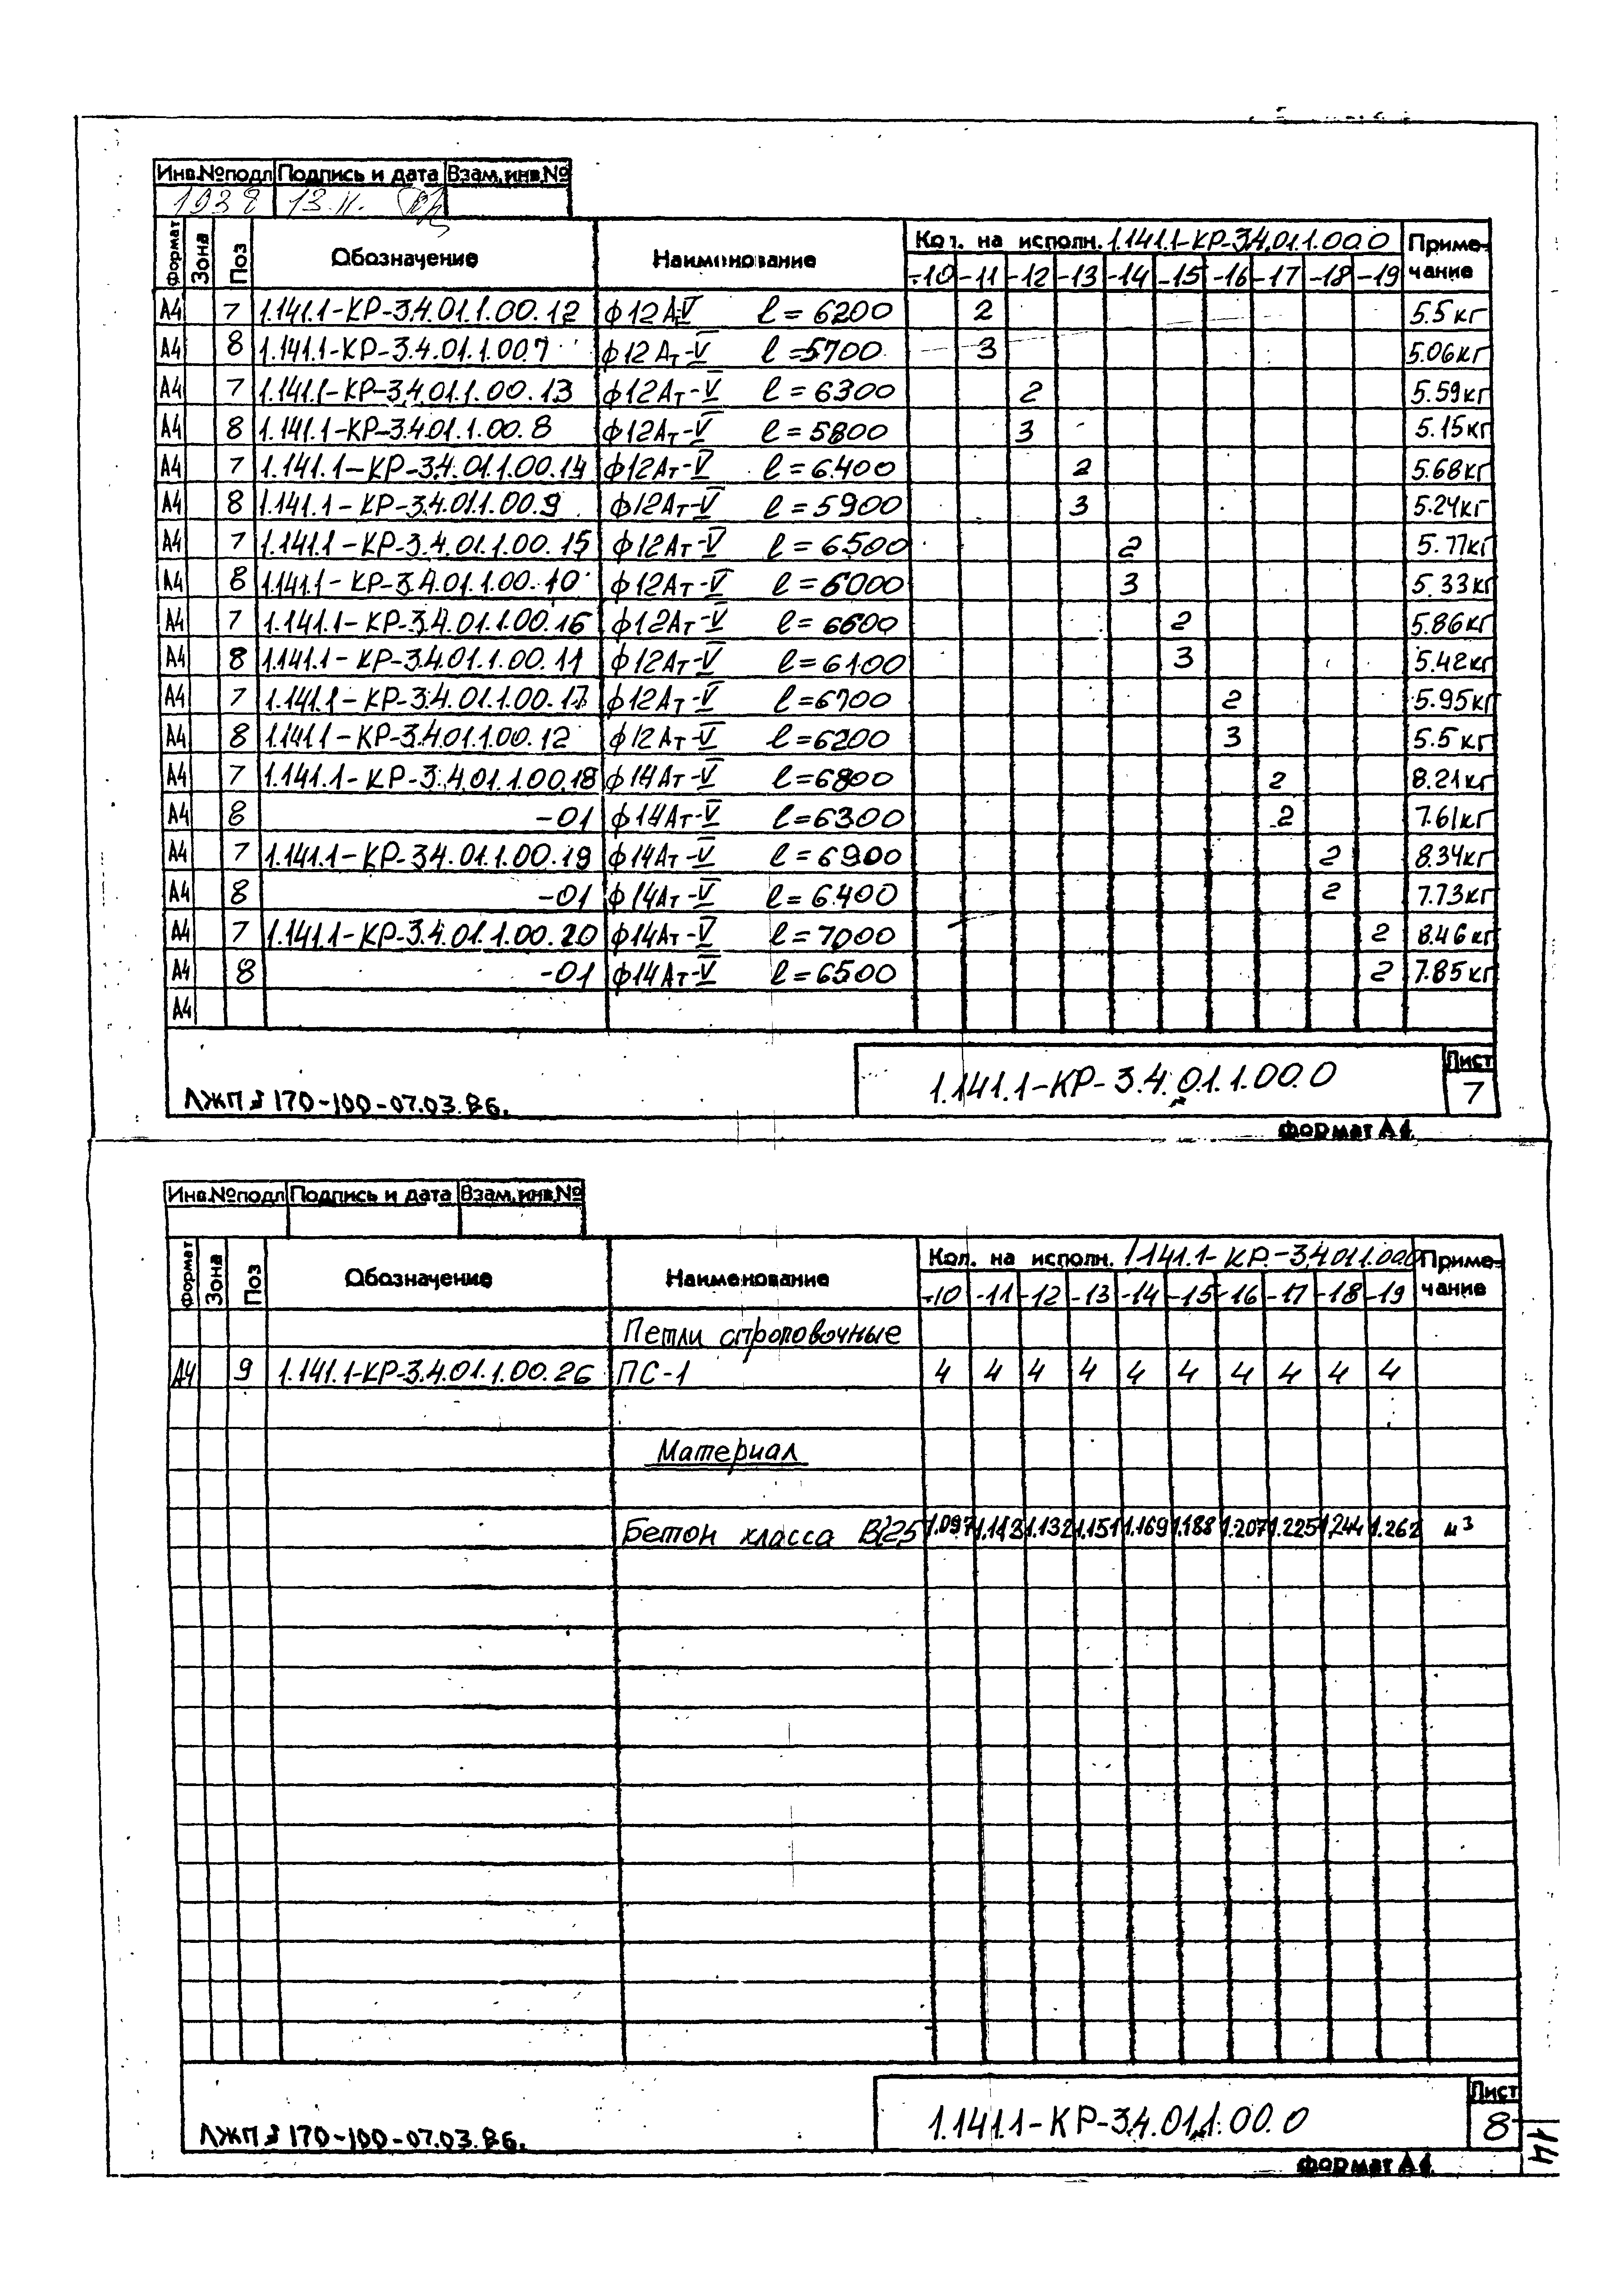 Инв.№подл Подпись и дата Взам.инв.№
1938 13.11.
Формат Зона Поз Обозначение Наименование Кол. на исполн. 1.141.1-КР-3.4.01.1.00.0 Приме-
-10 -11 -12 -13 -14 -15 -16 -17 -18 -19 чание
А4 7 1.141.1-КР-3.4.01.1.00.12 ф12А-V l=6200 2 5.5кг
А4 8 1.141.1-КР-3.4.01.1.00.7 ф12Ат-V l=5700 3 5.06кг
А4 7 1.141.1-КР-3.4.01.1.00.13 ф12Ат-V l=6300 2 5.59кг
А4 8 1.141.1-КР-3.4.01.1.00.8 ф12Ат-V l=5800 3 5.15кг
А4 7 1.141.1-КР-3.4.01.1.00.14 ф12Ат-V l=6400 2 5.68кг
А4 8 1.141.1-КР-3.4.01.1.00.9 ф12Ат-V l=5900 3 5.24кг
А4 7 1.141.1-КР-3.4.01.1.00.15 ф12Ат-V l=6500 2 5.77кг
А4 8 1.141.1-КР-3.4.01.1.00.10 ф12Ат-V l=6000 3 5.33кг
А4 7 1.141.1-КР-3.4.01.1.00.16 ф12Ат-V l=6600 2 5.86кг
А4 8 1.141.1-КР-3.4.01.1.00.11 ф12Ат-V l=6100 3 5.42кг
А4 7 1.141.1-КР-3.4.01.1.00.17 ф12Ат-V l=6700 2 5.95кг
А4 8 1.141.1-КР-3.4.01.1.00.12 ф12Ат-V l=6200 3 5.5кг
А4 7 1.141.1-КР-3.4.01.1.00.18 ф14Ат-V l=6800 2 8.21кг
А4 8 -01 ф14Ат-V l=6300 2 7.61кг
А4 7 1.141.1-КР-3.4.01.1.00.19 ф14Ат-V l=6900 2 8.34кг
А4 8 -01 ф14Ат-V l=6400 2 7.73кг
А4 7 1.141.1-КР-3.4.01.1.00.20 ф14Ат-V l=7000 2 8.46кг
А4 8 -01 ф14Ат-V l=6500 2 7.85кг
А4
1.141.1-КР-3.4.01.1.00.0 Лист
7
ЛЖПз 170-100-07.03.86.
Формат А4
Инв.№подл Подпись и дата Взам.инв.№
Формат Зона Поз Обозначение Наименование Кол. на исполн. 1.141.1-КР-3.4.01.1.00.0 Приме-
-10 -11 -12 -13 -14 -15 -16 -17 -18 -19 чание
Петли строповочные
А4 9 1.141.1-КР-3.4.01.1.00.26 ПС-1 4 4 4 4 4 4 4 4 4 4
Материал
Бетон класса В25 1.097 1.113 1.132 1.151 1.169 1.188 1.207 1.225 1.244 1.262 м3
1.141.1-КР-3.4.01.1.00.0 Лист
8
ЛЖПз 170-100-07.03.86.
Формат А4
14